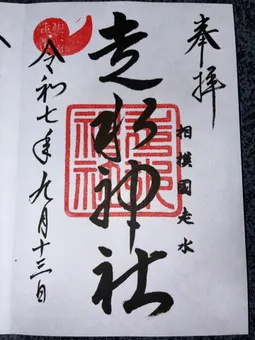 奉拝
相模國走水
走水神社
令和七年九月十三日